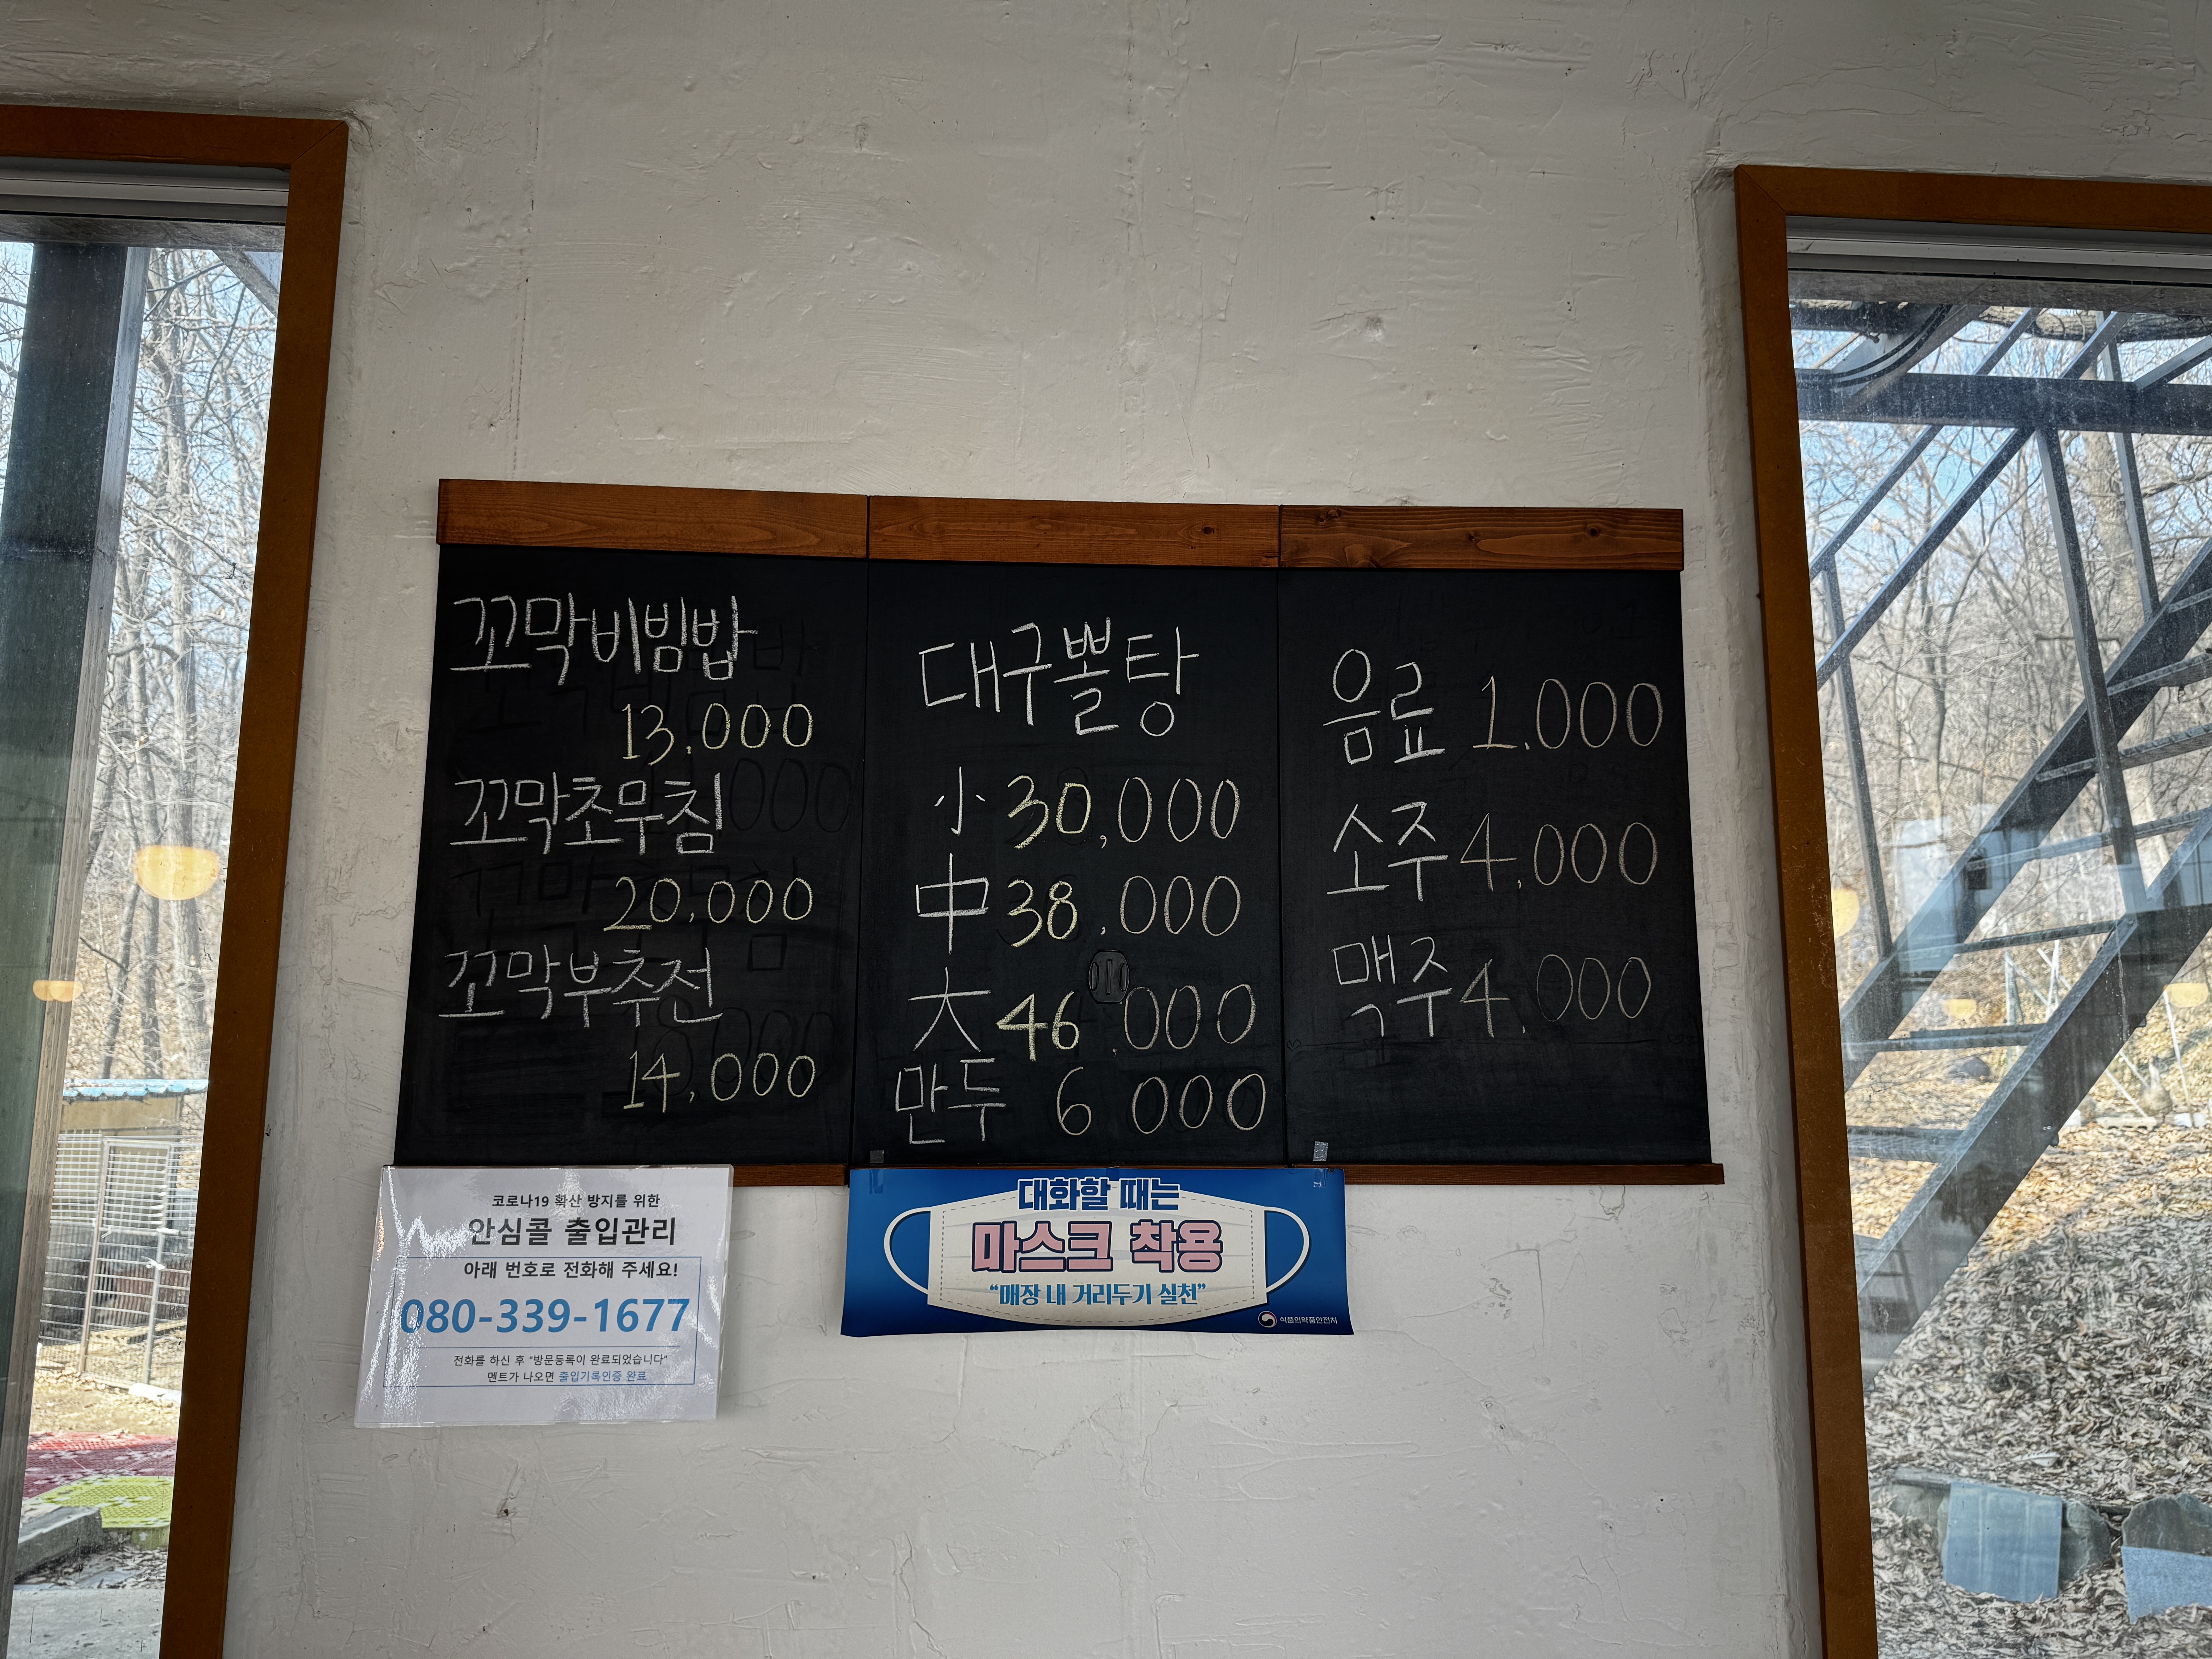 꼬막비빔밥
13,000
꼬막초무침
20,000
꼬막부추전
14,000
대구뽈탕
小 30,000
中 38,000
大 46,000
만두 6 000
음료 1,000
소주 4,000
맥주 4,000
코로나19 확산 방지를 위한
안심콜 출입관리
아래 번호로 전화해 주세요!
080-339-1677
전화를 하신 후 "방문등록이 완료되었습니다"
멘트가 나오면 출입기록인증 완료
대화할 때는
마스크 착용
“매장 내 거리두기 실천”
식품의약품안전처